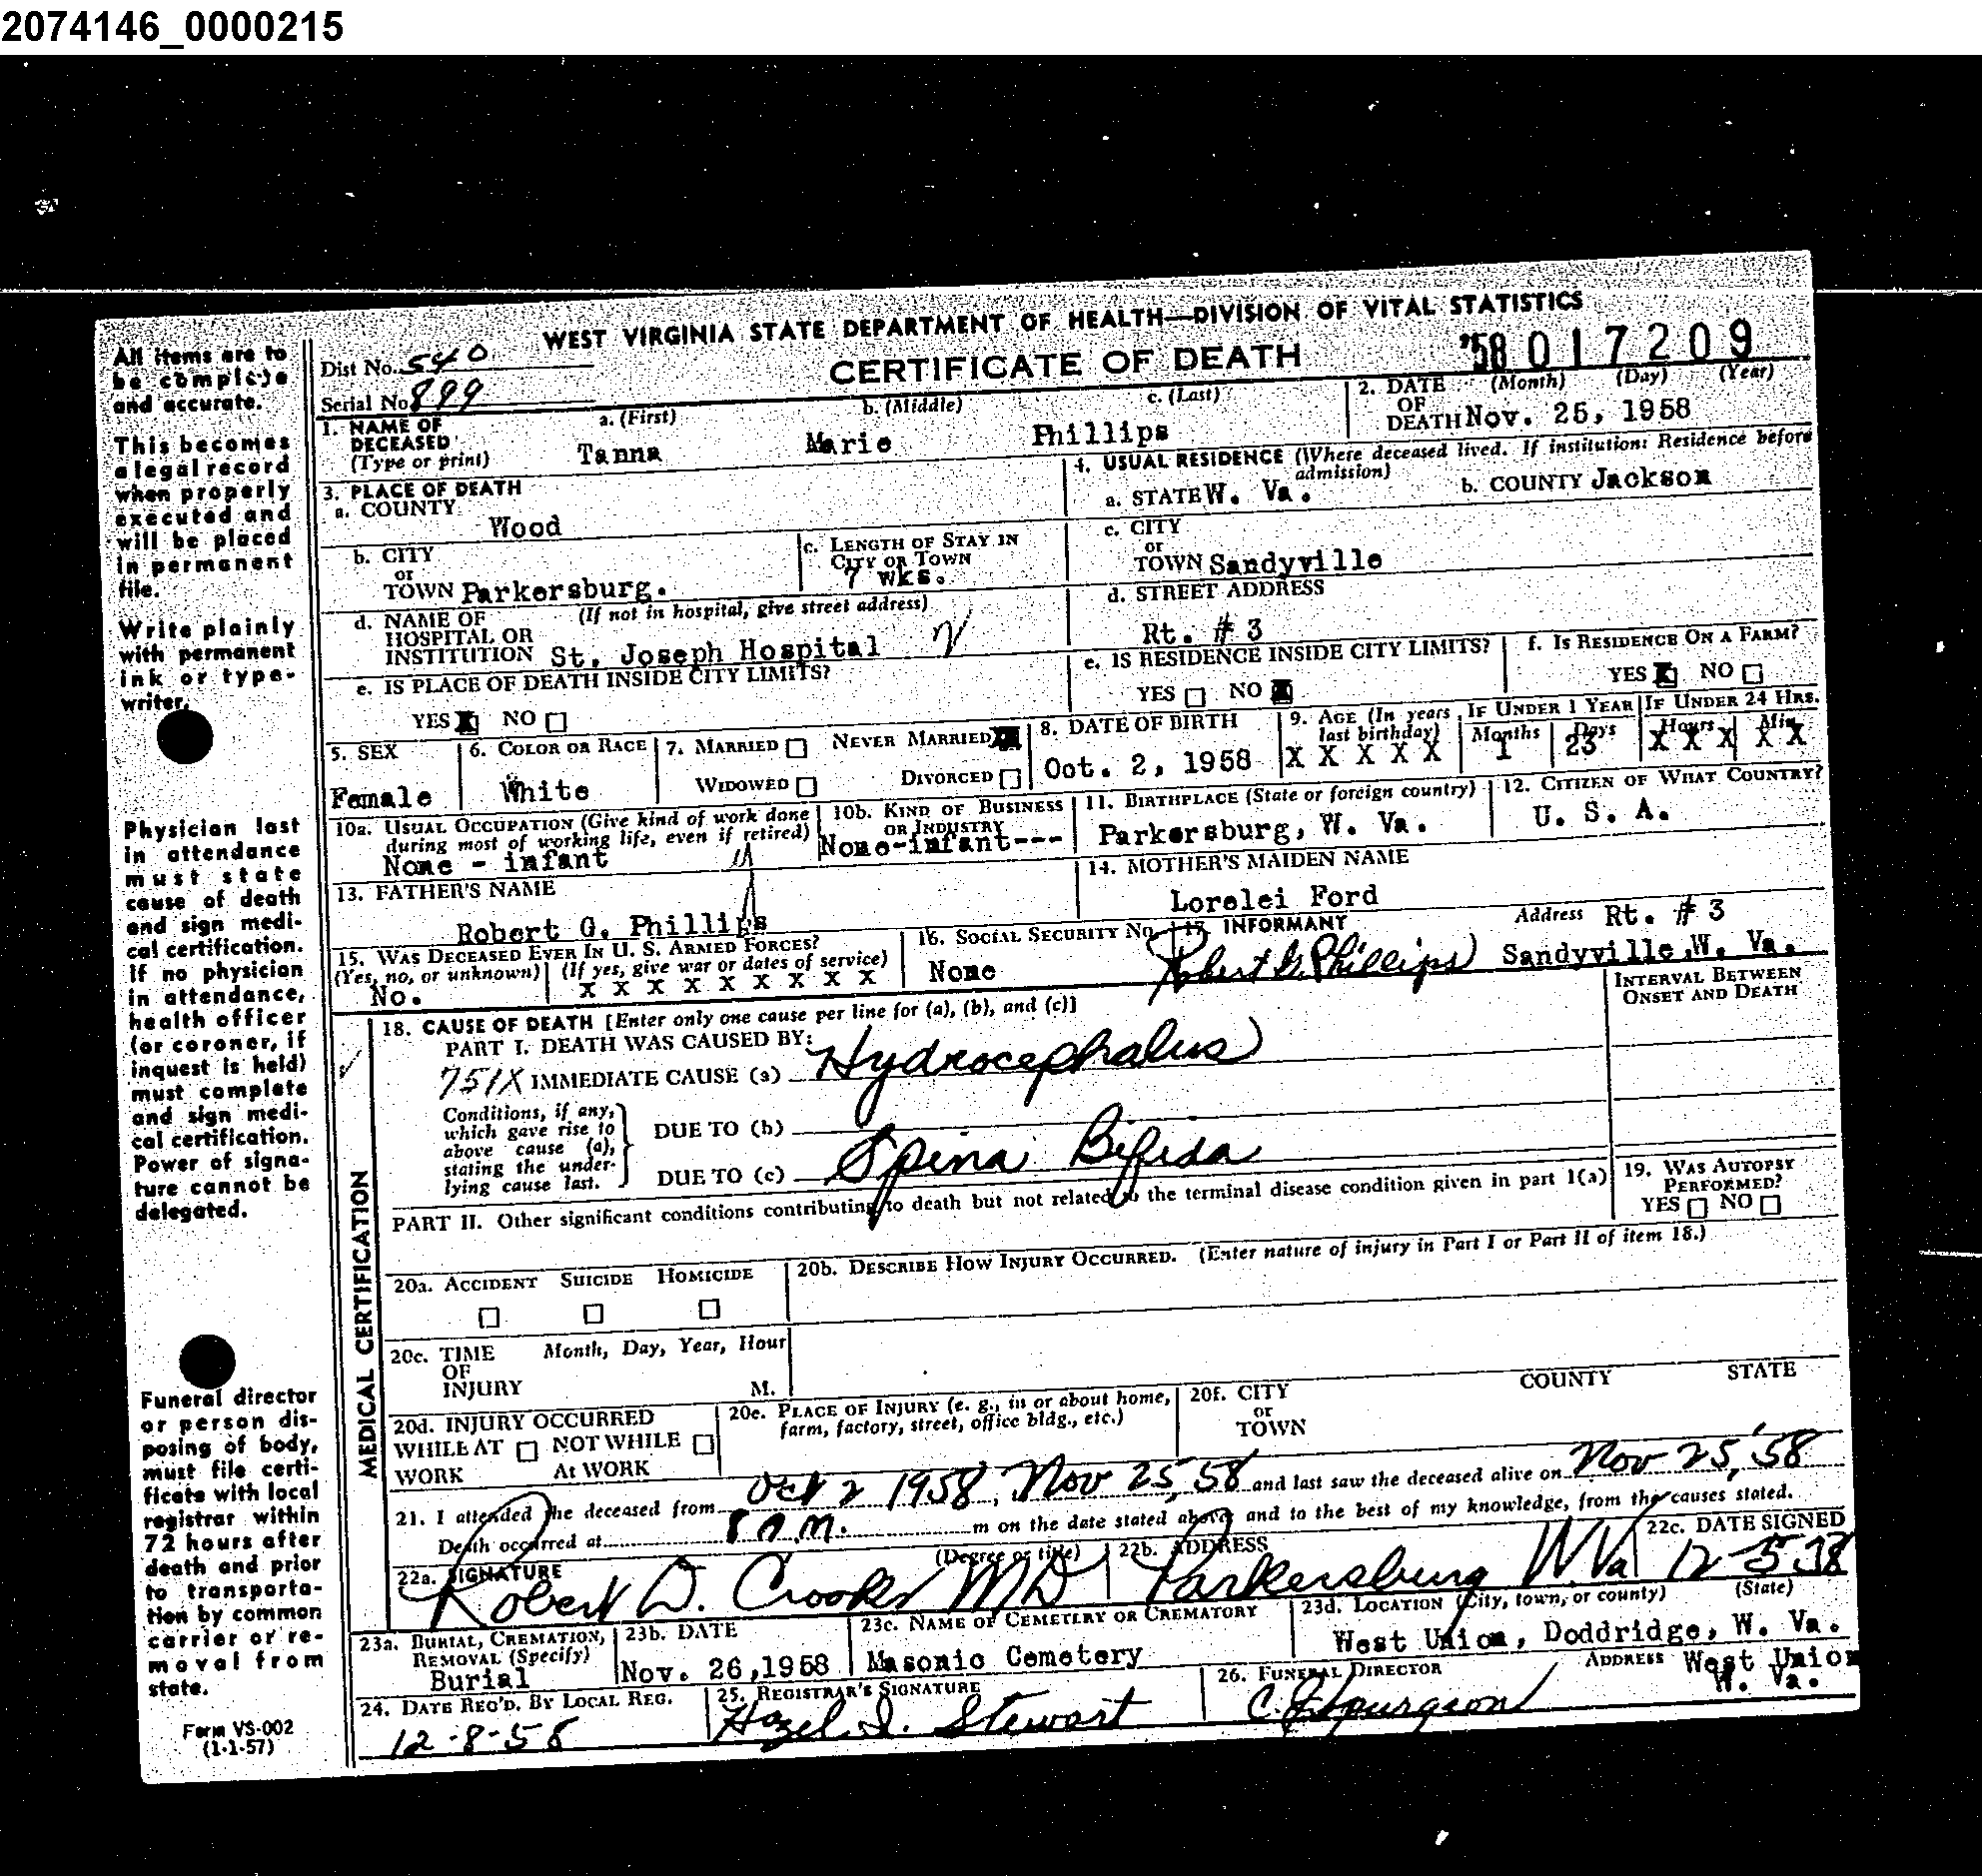 2074146_0000215
WEST VIRGINIA STATE DEPARTMENT OF HEALTH—DIVISION OF VITAL STATISTICS
CERTIFICATE OF DEATH
'58 017209
Dist No. 540
Serial No. 899
1. NAME OF DECEASED (Type or print) a. (First) b. (Middle) c. (Last)
Tanna Marie Phillips
2. DATE OF DEATH (Month) (Day) (Year)
Nov. 25, 1958
3. PLACE OF DEATH
a. COUNTY
Wood
4. USUAL RESIDENCE (Where deceased lived. If institution: Residence before admission)
a. STATE W. Va. b. COUNTY Jackson
b. CITY or TOWN Parkersburg.
c. LENGTH OF STAY IN CITY OR TOWN
7 wks.
c. CITY or TOWN Sandyville
d. NAME OF HOSPITAL OR INSTITUTION (If not in hospital, give street address)
St. Joseph Hospital
d. STREET ADDRESS
Rt. # 3
e. IS PLACE OF DEATH INSIDE CITY LIMITS?
YES X NO
e. IS RESIDENCE INSIDE CITY LIMITS?
YES NO X
f. IS RESIDENCE ON A FARM?
YES X NO
5. SEX
Female
6. COLOR OR RACE
White
7. MARRIED NEVER MARRIED X
WIDOWED DIVORCED
8. DATE OF BIRTH
Oct. 2, 1958
9. AGE (In years last birthday)
X X X X X
IF UNDER 1 YEAR
Months Days
1 23
IF UNDER 24 HRS.
Hours Min.
X X X X X
10a. USUAL OCCUPATION (Give kind of work done during most of working life, even if retired)
None - infant
10b. KIND OF BUSINESS OR INDUSTRY
None-infant---
11. BIRTHPLACE (State or foreign country)
Parkersburg, W. Va.
12. CITIZEN OF WHAT COUNTRY?
U. S. A.
13. FATHER'S NAME
Robert G. Phillips
14. MOTHER'S MAIDEN NAME
Lorelei Ford
15. WAS DECEASED EVER IN U. S. ARMED FORCES?
(Yes, no, or unknown) (If yes, give war or dates of service)
No. X X X X X X X X X
16. SOCIAL SECURITY No.
None
17. INFORMANT Address Rt. # 3
Robert G. Phillips Sandyville, W. Va.
MEDICAL CERTIFICATION
18. CAUSE OF DEATH [Enter only one cause per line for (a), (b), and (c)]
INTERVAL BETWEEN ONSET AND DEATH
PART I. DEATH WAS CAUSED BY:
751X IMMEDIATE CAUSE (a) Hydrocephalus
Conditions, if any, which gave rise to above cause (a), stating the underlying cause last.
DUE TO (b)
DUE TO (c) Spina Bifida
PART II. Other significant conditions contributing to death but not related to the terminal disease condition given in part I(a)
19. WAS AUTOPSY PERFORMED?
YES NO
20a. ACCIDENT SUICIDE HOMICIDE
20b. DESCRIBE HOW INJURY OCCURRED. (Enter nature of injury in Part I or Part II of item 18.)
20c. TIME OF INJURY Month, Day, Year, Hour
M.
20d. INJURY OCCURRED
WHILE AT WORK NOT WHILE AT WORK
20e. PLACE OF INJURY (e. g., in or about home, farm, factory, street, office bldg., etc.)
20f. CITY or TOWN COUNTY STATE
21. I attended the deceased from Oct 2 1958, Nov 25, 58 and last saw the deceased alive on Nov 25, '58
Death occurred at m on the date stated above; and to the best of my knowledge, from the causes stated.
22a. SIGNATURE (Degree or title)
Robert D. Crooks MD
22b. ADDRESS
Parkersburg W.Va
22c. DATE SIGNED
12-5-58
23a. BURIAL, CREMATION, REMOVAL (Specify)
Burial
23b. DATE
Nov. 26,1958
23c. NAME OF CEMETERY OR CREMATORY
Masonic Cemetery
23d. LOCATION (City, town, or county) (State)
West Union, Doddridge, W. Va.
24. DATE REC'D. BY LOCAL REG.
12-8-58
25. REGISTRAR'S SIGNATURE
Hazel I. Stewart
26. FUNERAL DIRECTOR ADDRESS West Union W. Va.
Spurgeon
All items are to
be complete
and accurate.
This becomes
a legal record
when properly
executed and
will be placed
in permanent
file.
Write plainly
with permanent
ink or type-
writer.
Physician last
in attendance
must state
cause of death
and sign medi-
cal certification.
If no physician
in attendance,
health officer
(or coroner, if
inquest is held)
must complete
and sign medi-
cal certification.
Power of signa-
ture cannot be
delegated.
Funeral director
or person dis-
posing of body,
must file certi-
ficate with local
registrar within
72 hours after
death and prior
to transporta-
tion by common
carrier or re-
moval from
state.
Form VS-002
(1-1-57)